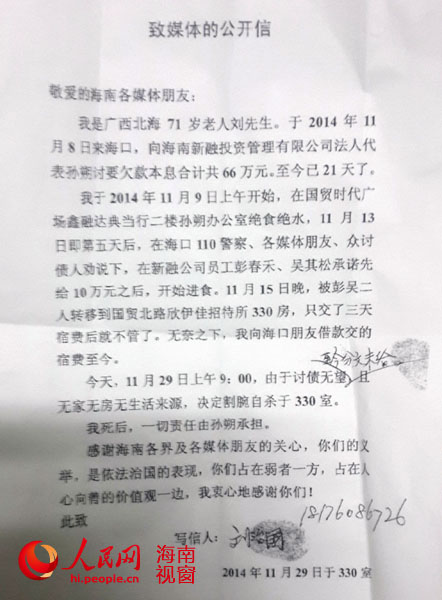 致媒体的公开信
敬爱的海南各媒体朋友：
我是广西北海 71 岁老人刘先生。于 2014 年 11
月 8 日来海口，向海南新融投资管理有限公司法人代
表孙朔讨要欠款本息合计共 66 万元。至今已 21 天了。
我于 2014 年 11 月 9 日上午开始，在国贸时代广
场鑫融达典当行二楼孙朔办公室绝食绝水，11 月 13
日即第五天后，在海口 110 警察、各媒体朋友、众讨
债人劝说下，在新融公司员工彭春禾、吴其松承诺先
给 10 万元之后，开始进食。11 月 15 日晚，被彭吴二
人转移到国贸北路欣伊佳招待所 330 房，只交了三天
宿费后就不管了。无奈之下，我向海口朋友借款交的
宿费至今。
今天，11 月 29 日上午 9：00，由于讨债无望，且
无家无房无生活来源，决定割腕自杀于 330 室。
我死后，一切责任由孙朔承担。
感谢海南各界及各媒体朋友的关心，你们的义
举，是依法治国的表现，你们占在弱者一方，占在人
心向善的价值观一边，我衷心地感谢你们！
此致
18176086726
写信人：刘 国
2014 年 11 月 29 日于 330 室
人民网 海南视窗
hi.people.cn